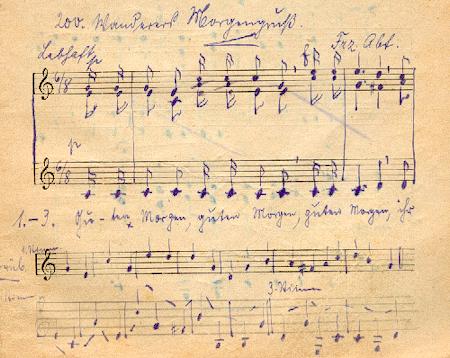 200. Wanderers Morgengruß.
Lebhaft. Frz. Abt.
6/8
p
6/8
1.-3. Gu-ten Morgen, guten Morgen, guten Morgen, ihr
3. Stimme